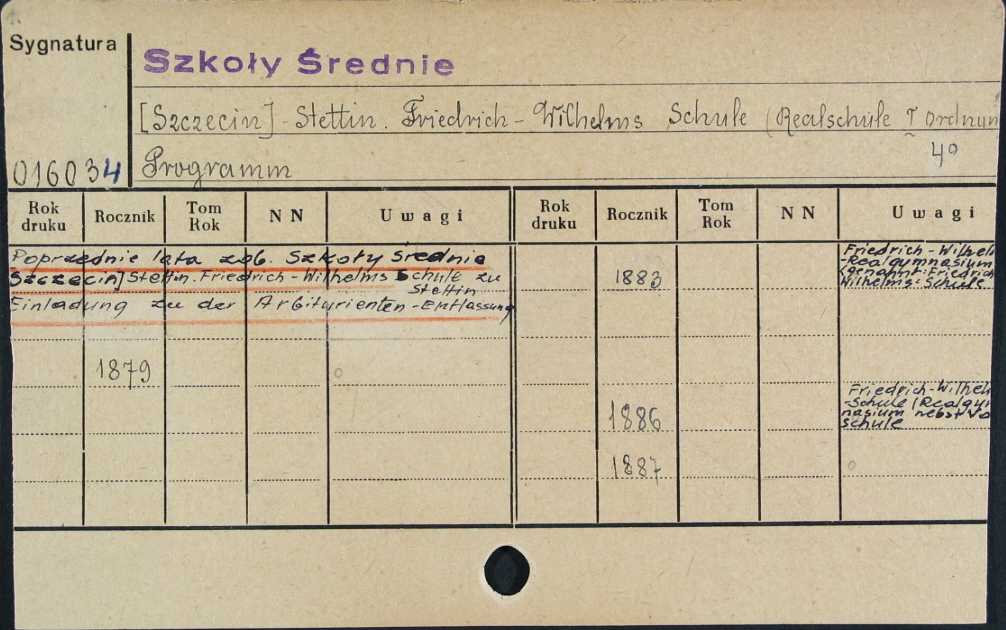 Sygnatura
Szkoły Średnie
[Szczecin] - Stettin. Friedrich - Wilhelms Schule (Realschule I ordnun
4°
016034
Programm
Rok druku Rocznik Tom Rok N N Uwagi Rok druku Rocznik Tom Rok N N Uwagi
Poprzednie lata zob. Szkoły Średnie
Szczecin] Stettin. Friedrich - Wilhelms Schule zu
Stettin
Einladung zu der Arbiturienten - Entlassung
1879
1883
Friedrich - Wilhelm
- Realgymnasium
(genannt: Friedrich
Wilhelms = Schule
1886
Friedrich - Wilhelm
- Schule (Realgym
nasium nebst Vo
schule
1887